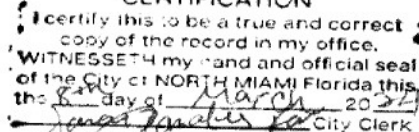 CERTIFICATION
I certify this to be a true and correct
copy of the record in my office.
WITNESSETH my hand and official seal
of the City of NORTH MIAMI Florida this
the 8th day of March 20
City Clerk